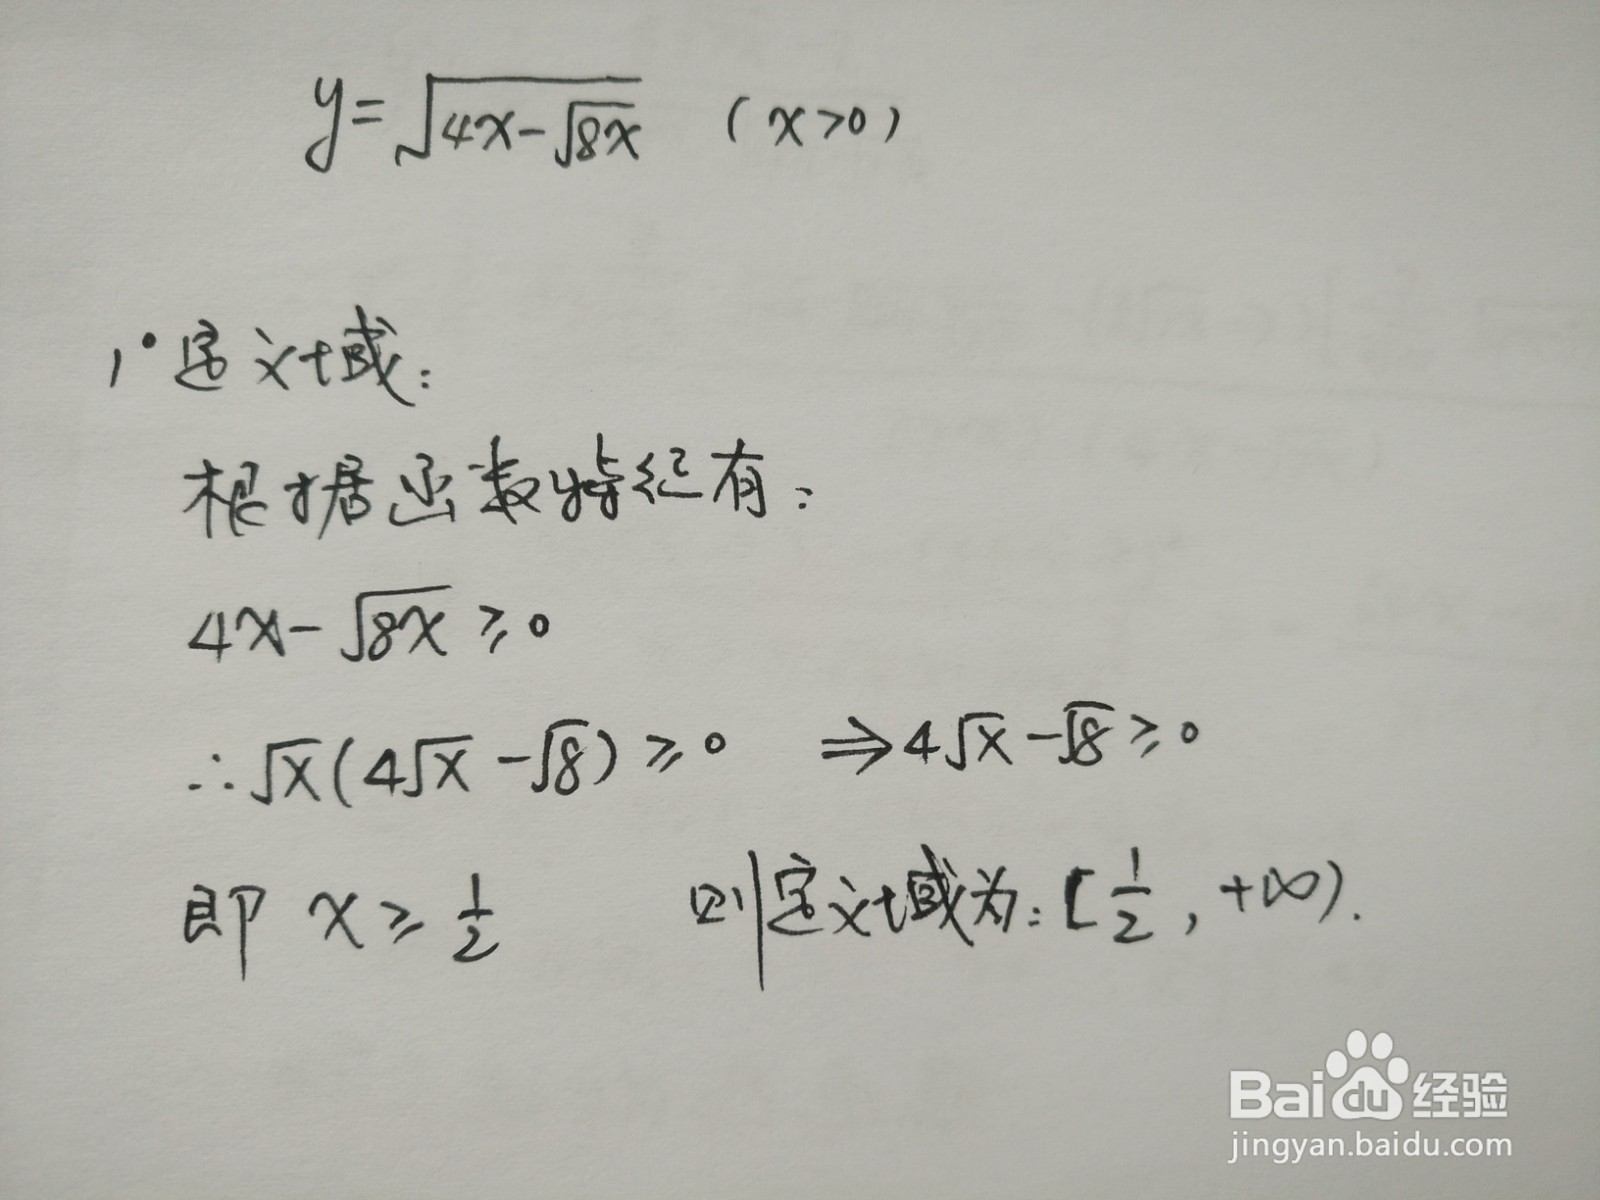 y=√(4x-√(8x)) (x>0)
1°定义域:
根据函数特征有:
4x-√(8x)≥0
∴√x(4√x-√8)≥0 ⇒4√x-√8≥0
即 x≥1/2 则定义域为:[1/2,+∞).
Baidu经验
jingyan.baidu.com